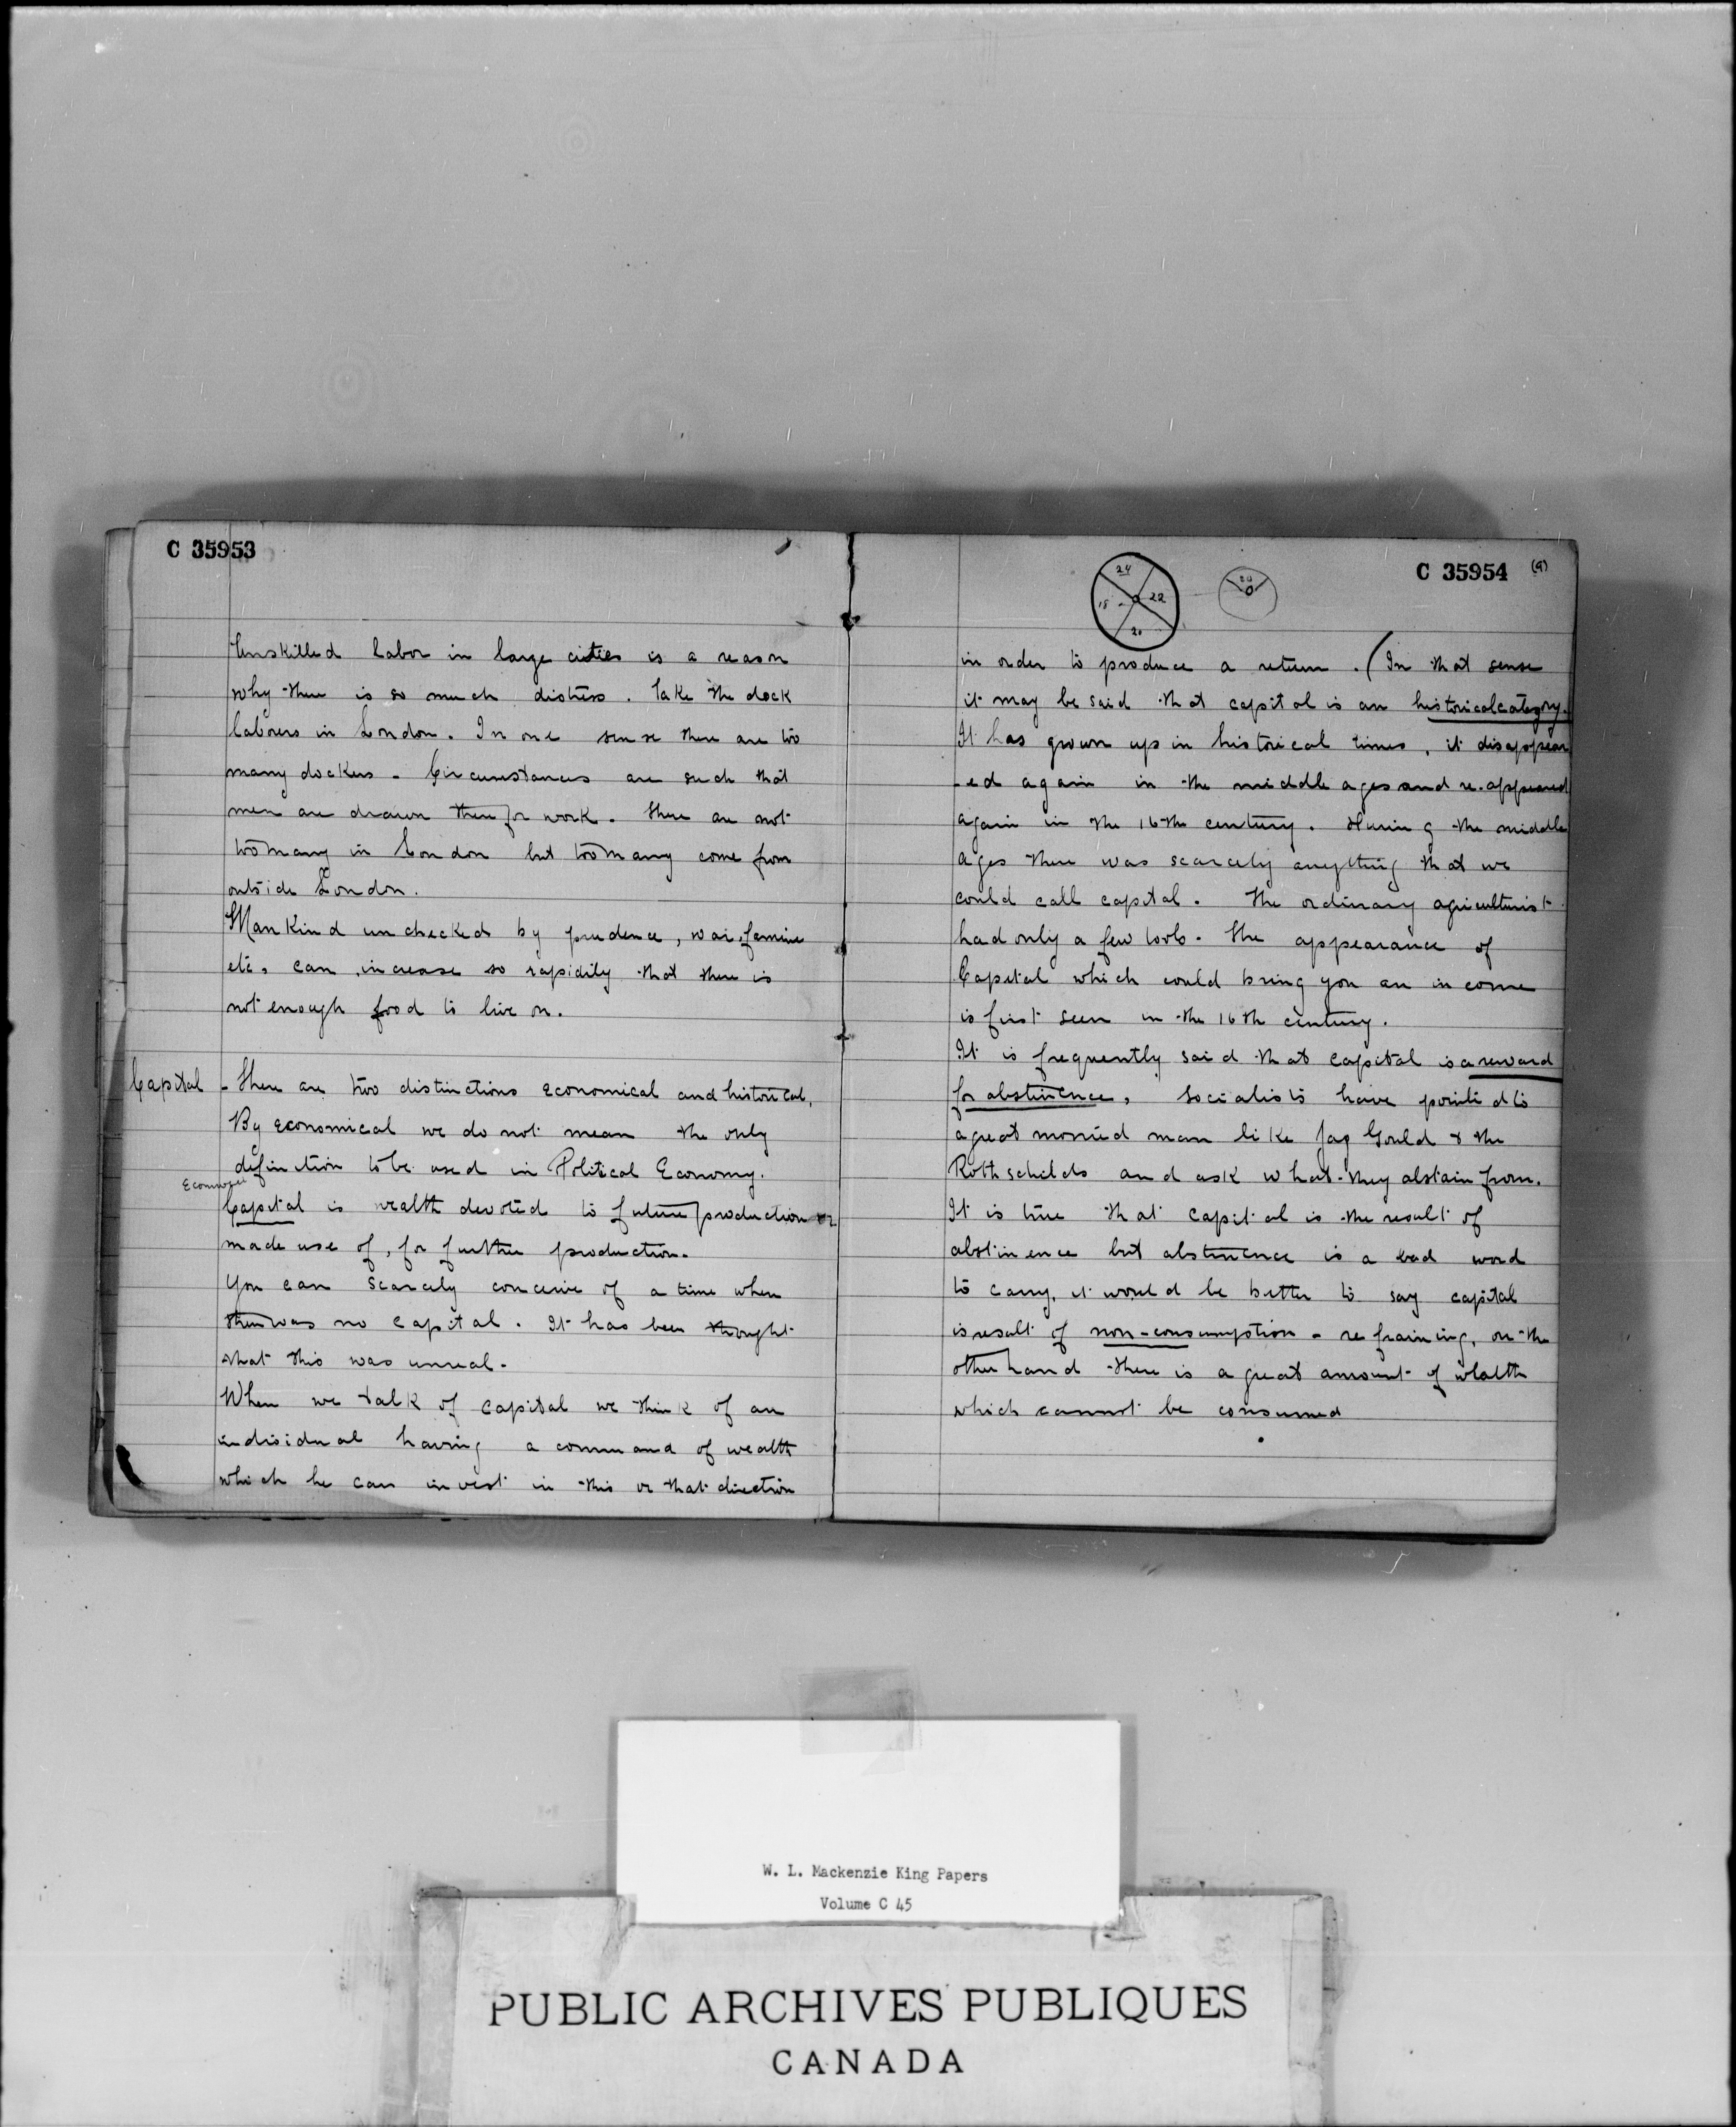 C 35953
Unskilled labor in large cities is a reason
why there is so much distress. Take the dock
laborers in London. In one sense there are too
many dockers - Circumstances are such that
men are drawn there for work. There are not
too many in London but too many come from
outside London.
Mankind unchecked by prudence, war, famine
etc. can increase so rapidily that there is
not enough food to live on.
Capital - There are two distinctions economical and historical.
By economical we do not mean the only
definition to be used in Political Economy.
Economic
Capital is wealth devoted to future production or
made use of, for further production.
You can scarcely conceive of a time when
there was no capital. It has been thought
that this was unreal.
When we talk of capital we think of an
individual having a command of wealth
which he can invest in this or that direction
24
22
20
18
20
C 35954 (9)
in order to produce a return. (In that sense
it may be said that capital is an historical category.
It has grown up in historical times, it disappear
-ed again in the middle ages and re-appeared
again in the 16th century. During the middle
ages there was scarcely anything that we
could call capital. The ordinary agriculturist
had only a few tools. The appearance of
Capital which could bring you an income
is first seen in the 16th century.
It is frequently said that capital is a reward
for abstinence, socialists have pointed to
a great monied man like Jay Gould & the
Rothschilds and ask what they abstain from.
It is true that capital is the result of
abstinence but abstinence is a bad word
to carry, it would be better to say capital
is result of non-consumption - refraining, on the
other hand there is a great amount of wealth
which cannot be consumed
W. L. Mackenzie King Papers
Volume C 45
PUBLIC ARCHIVES PUBLIQUES
CANADA